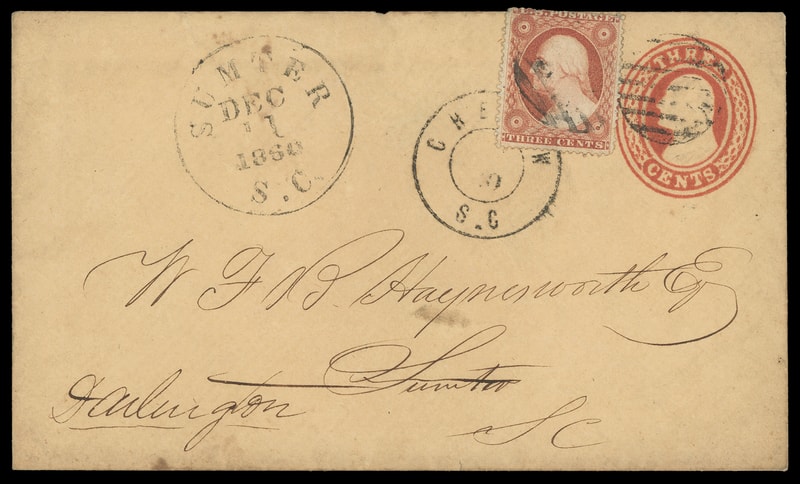 SUMTER
DEC
11
1860
S.C.
CHE
W
S.C
U.S. POSTAGE
THREE CENTS
THREE
CENTS
W F B. Haynesworth Esq
Sumter
Darlington
SC